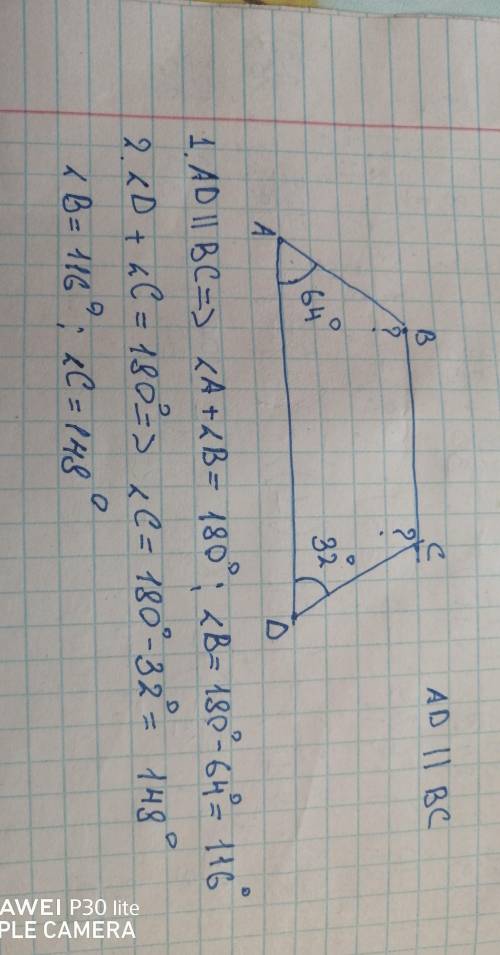 AD || BC
B
C
?
?
64°
32°
A
D
1. AD || BC => ∠A + ∠B = 180°; ∠B = 180° - 64° = 116°
2. ∠D + ∠C = 180° => ∠C = 180° - 32° = 148°
∠B = 116°; ∠C = 148°
AWEI P30 lite
PLE CAMERA